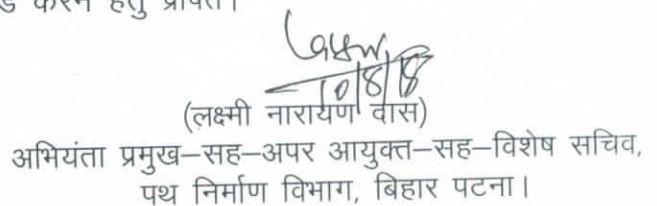 करने हेतु प्रेषित।
10/8/18
(लक्ष्मी नारायण दास)
अभियंता प्रमुख–सह–अपर आयुक्त–सह–विशेष सचिव,
पथ निर्माण विभाग, बिहार पटना।